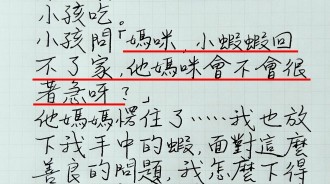 小孩吃。
小孩問「媽咪,小蝦蝦回
不了家,他媽咪會不會很
著急呀?」
他媽媽愣住了……我也放
下我手中的蝦,面對這麼
善良的問題,我怎麼下得